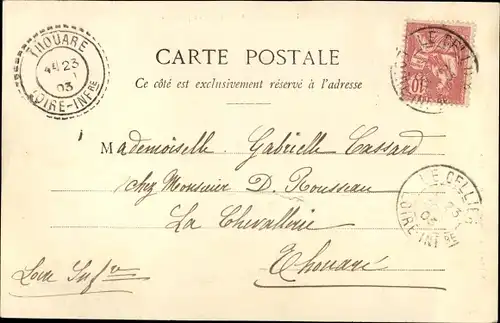 THOUARÉ
4E 23
1
03
LOIRE-INFRE
CARTE POSTALE
Ce côté est exclusivement réservé à l'adresse
LE CELLIER
10
Mademoiselle Gabrielle Cassard
chez Monsieur D. Rousseau
La Chevallerie
Thouaré
Loire Infre
LE CELLIER
23
1
03
LOIRE-INFRE